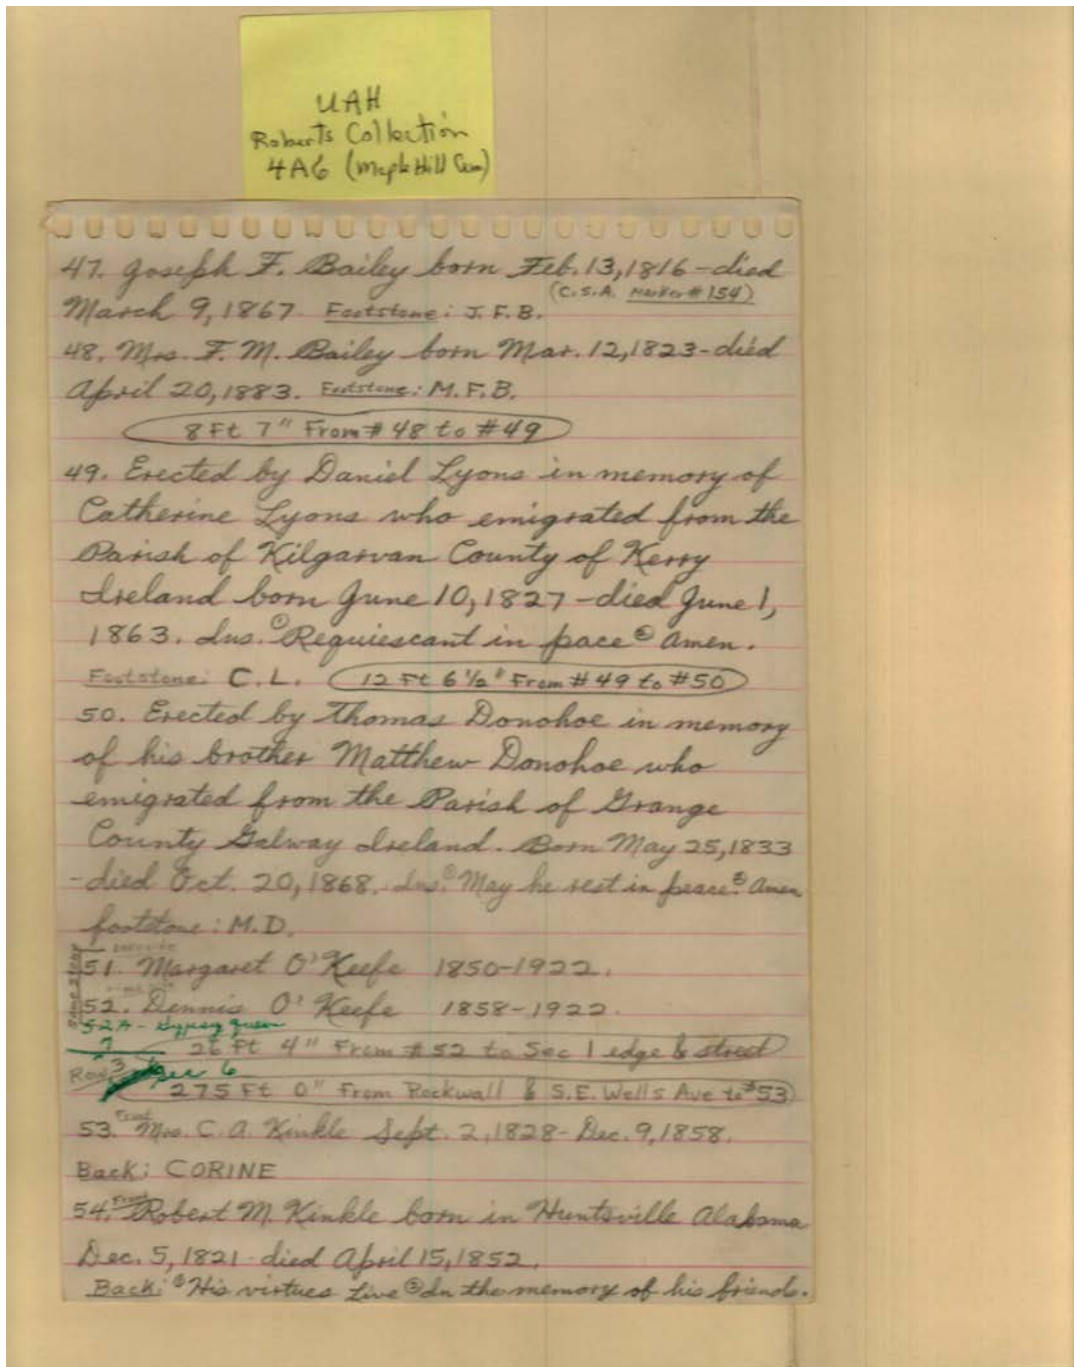 UAH
Roberts Collection
4A6 (Maple Hill Cem)
47. Joseph F. Bailey born Feb. 13, 1816 - died
(C.S.A. Marker # 154)
March 9, 1867. Footstone: J. F. B.
48. Mrs. F. M. Bailey born Mar. 12, 1823 - died
April 20, 1883. Footstone: M. F. B.
8 Ft 7" From # 48 to # 49
49. Erected by Daniel Lyons in memory of
Catherine Lyons who emigrated from the
Parish of Kilgarvan County of Kerry
Ireland born June 10, 1827 - died June 1,
1863. Ins. ① Requiescant in pace ② Amen.
Footstone: C. L. 12 Ft 6 1/2" From # 49 to # 50
50. Erected by Thomas Donohoe in memory
of his brother Matthew Donohoe who
emigrated from the Parish of Grange
County Galway Ireland. Born May 25, 1833
- died Oct. 20, 1868. Ins. ① May he rest in peace. ② Amen
footstone: M. D.
Same stone
51. Margaret O'Keefe 1850-1922.
52. Dennis O'Keefe 1858-1922.
52A - Gypsy Queen
26 Ft 4" From # 52 to Sec 1 edge & street
Row 3 Sec 6
275 Ft 0" From Rockwall & S.E. Wells Ave to #53
53. Front Mrs. C. A. Kinkle Sept. 2, 1828 - Dec. 9, 1858.
Back: CORINE
54. Front Robert M. Kinkle born in Huntsville Alabama
Dec. 5, 1821 - died April 15, 1852.
Back: ① His virtues Live ② In the memory of his friends.